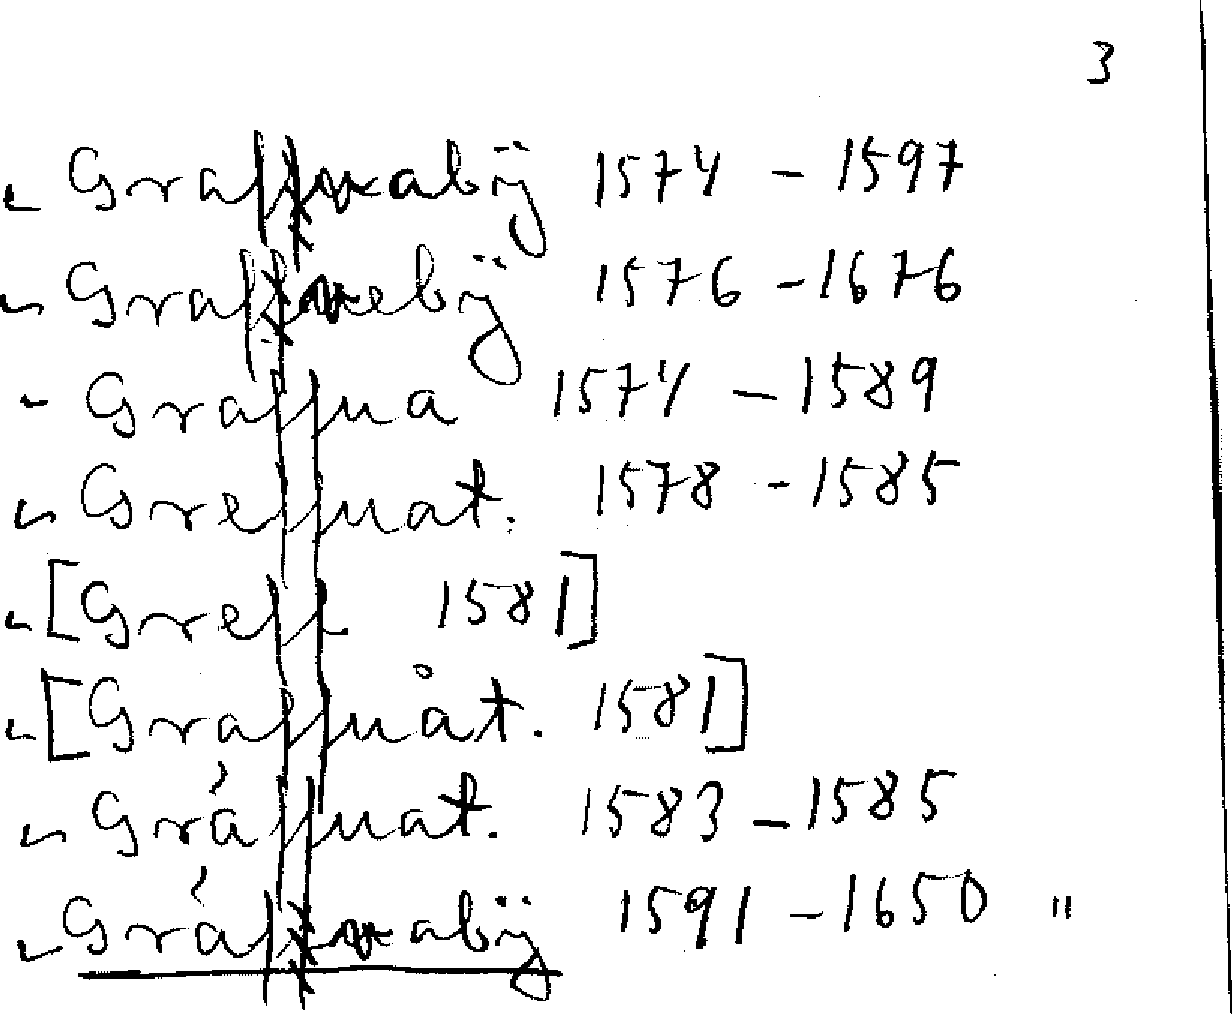 3
" Graffwabÿ 1574 - 1597
" Graffwebÿ 1576 - 1676
- Graffua 1574 - 1589
" Greffuat. 1578 - 1585
" [Greff 1581]
" [Graffuåt. 1581]
" Gráffuat. 1583 - 1585
" Gráffwabÿ 1591 - 1650 "